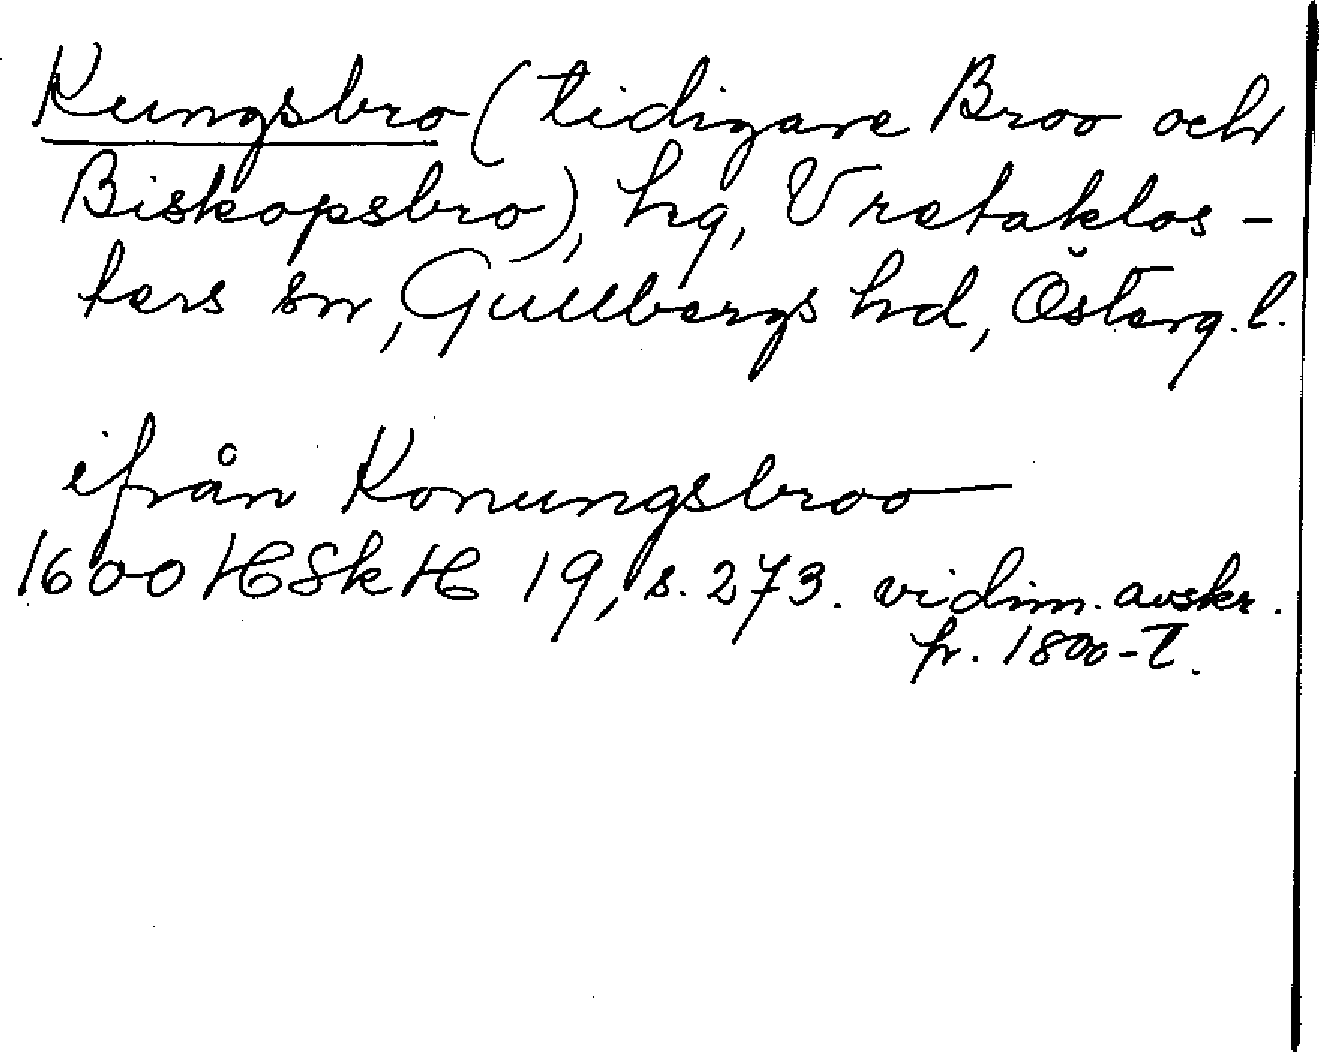 Kungsbro (tidigare Broo och
Biskopsbro), hg, Vretaklos-
ters sn, Gullbergs hd, Österg. l.
ifrån Konungsbroo
1600 HSkH 19, s. 273. vidim. avskr.
fr. 1800-t.